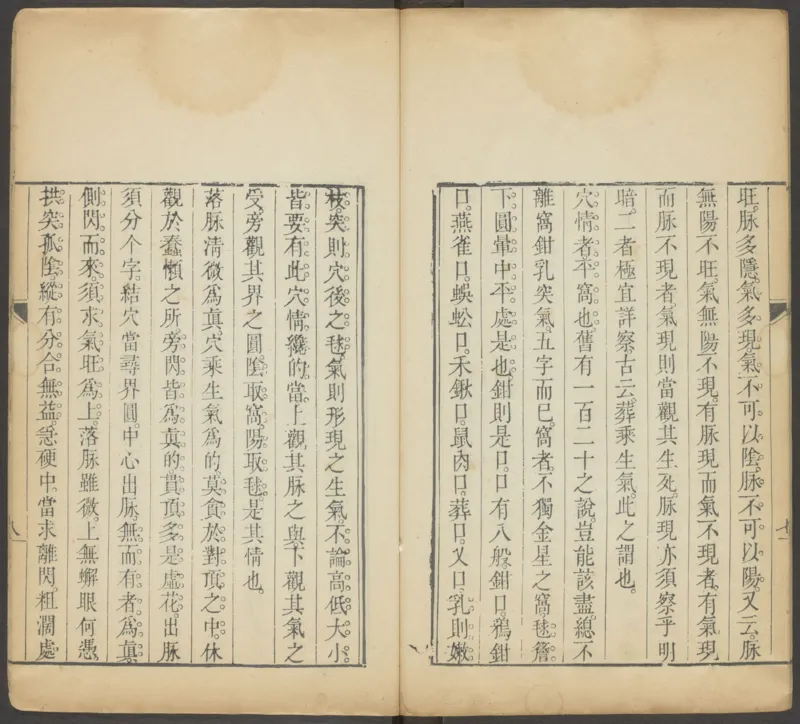 旺。脉多隱。氣多現。氣不可以陰。脉不可以陽。又云。脉
無陽不旺。氣無陽不現。有脉現而氣不現者。有氣現
而脉不現者。氣現則當觀其生死。脉現亦須察乎明
暗。二者極宜詳察。古云。葬乘生氣。此之謂也。
穴情者。平窩也。舊有一百二十之說。豈能該盡。總不
離窩鉗乳突氣。五字而巳。窩者。不獨金星之窩。毬簷
下。圓暈中平。處是也。鉗則是口。口有八般。鉗口。鴉鉗
口。燕雀口。蜈蚣口。禾鍬口。鼠肉口。葬口。又口。乳則嫩
枝。突則穴後之毬。氣則形現之生氣。不論高低大小
皆要有此穴情。纔的。當上觀其脉之與下觀其氣之
受。旁觀其界之圓。陰取窩。陽取毬。是其情也。
落脉清微爲眞。穴乘生氣爲的。莫貪於對頂之中。休
觀於蠢懶之所。旁閃皆爲眞的。貫頂多是虛花。出脉
須分个字。結穴當尋界圓。中心出脉。無而有者爲眞。
側閃而來。須求氣旺爲上。落脉雖微。上無蠏眼何憑
拱突孤陰。縱有分合。無益。急硬中。當求離閃。粗濶處